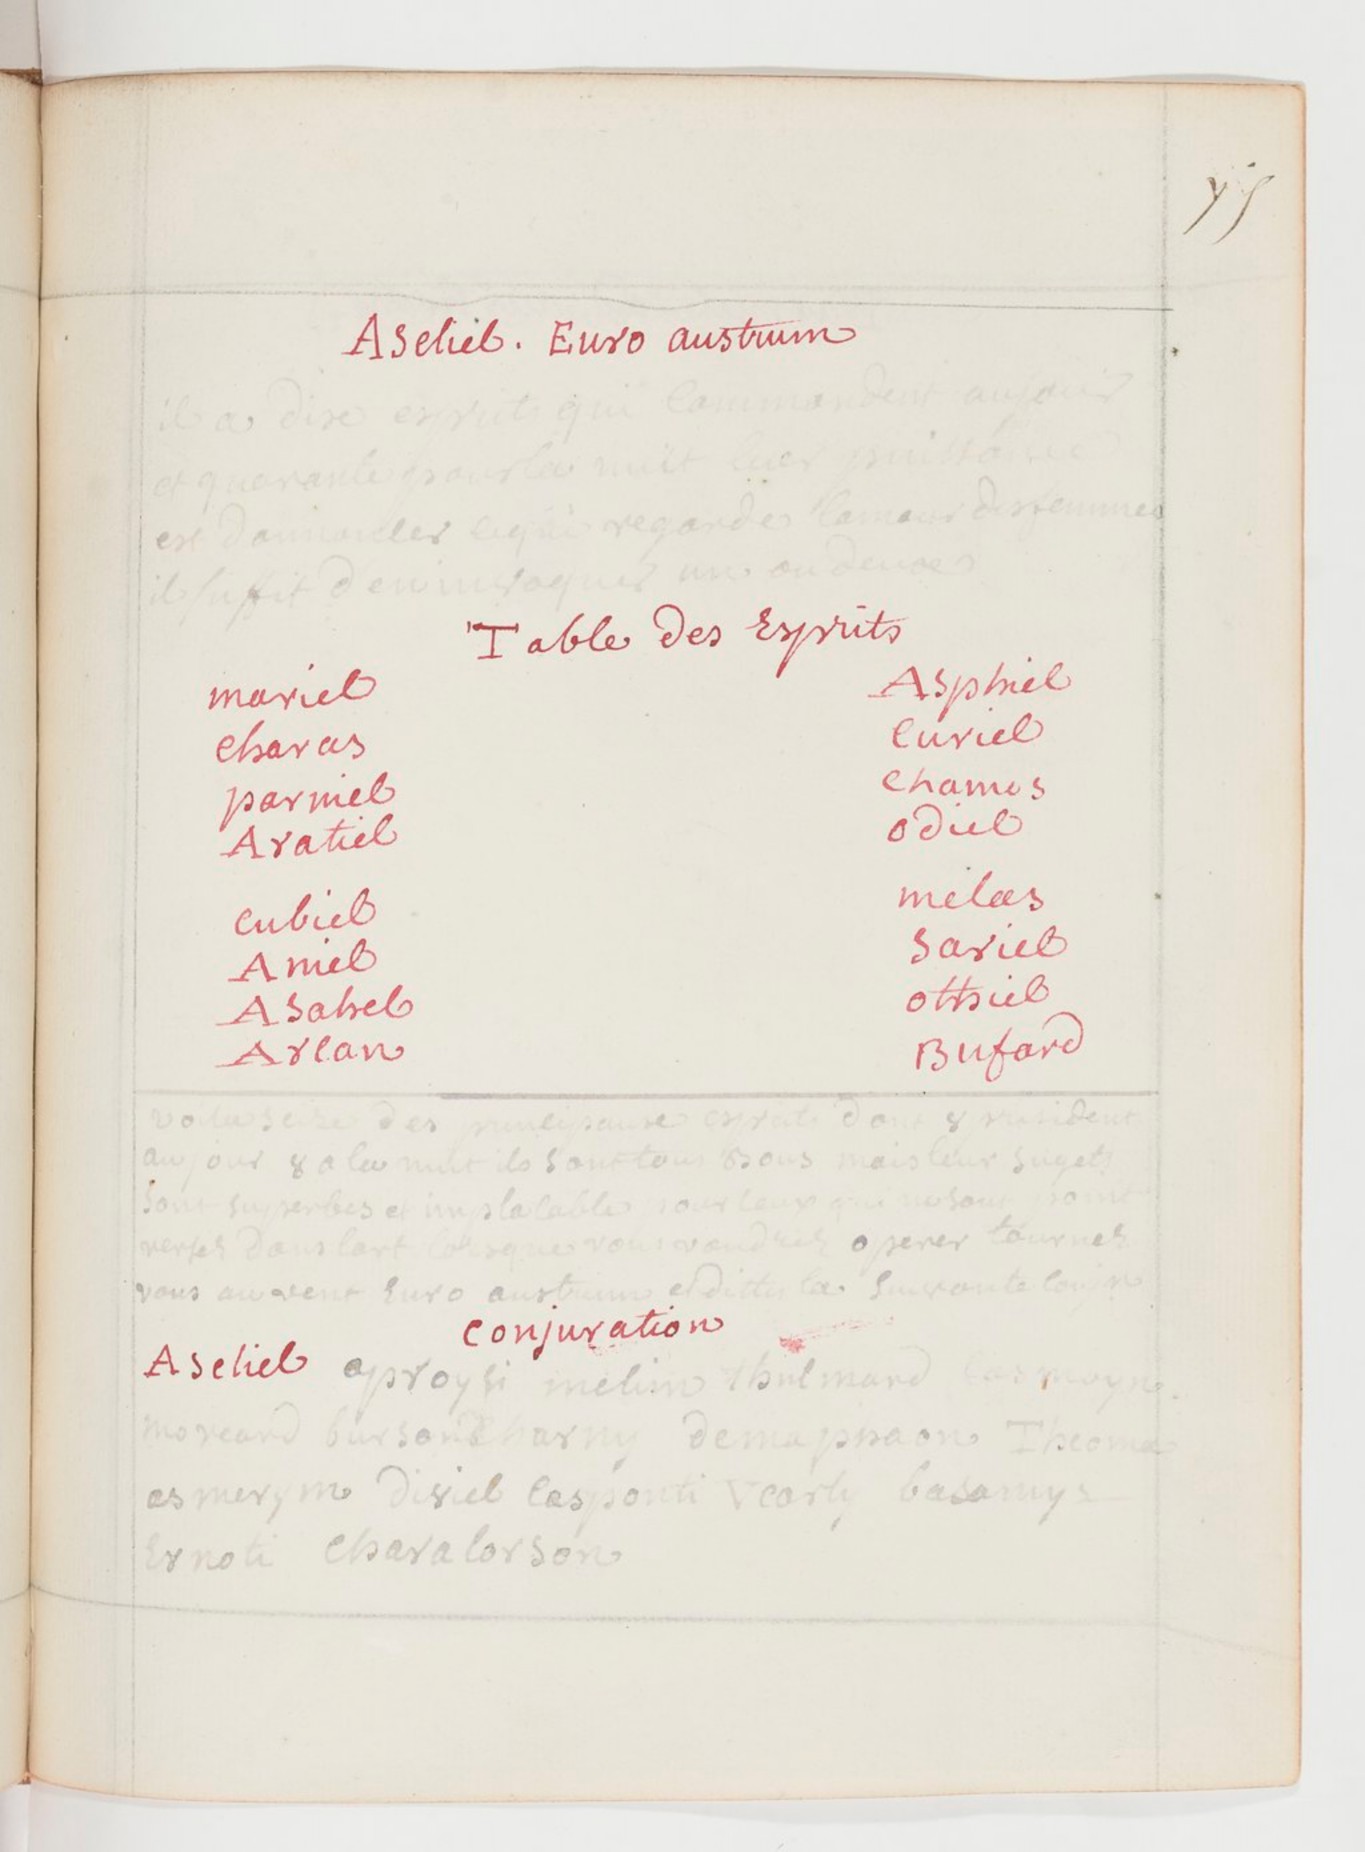 Aseliel. Euro austrum
il a dixe esprits qui Commandent au jour
et quarante pour la nuit
est regarde lamour des femmes
il suffit d'en invoquer un ou deux
Table Des Esprits
mariel
Asphiel
charas
Curiel
parniel
Chamos
Aratiel
odiel
cubiel
melas
Aniel
Sariel
Asahel
othiel
Arcan
Bufard
voila seize des principaux esprits dont 8 president
au jour 8 a la nuit ils sont tous Bons mais leur sugets
sont superbes et implacable pour ceux qui ne sont point
versés dans lart lorsque vous voudrez operer tournez
vous au vent Euro austrum et dittes la suivante
Conjuration
Aseliel aproysi melim thulnard casmoyn
moreard bursson charny demaphaon Theoma
asmerym diviel casponti vearly basamys
Ernoti chavalorson